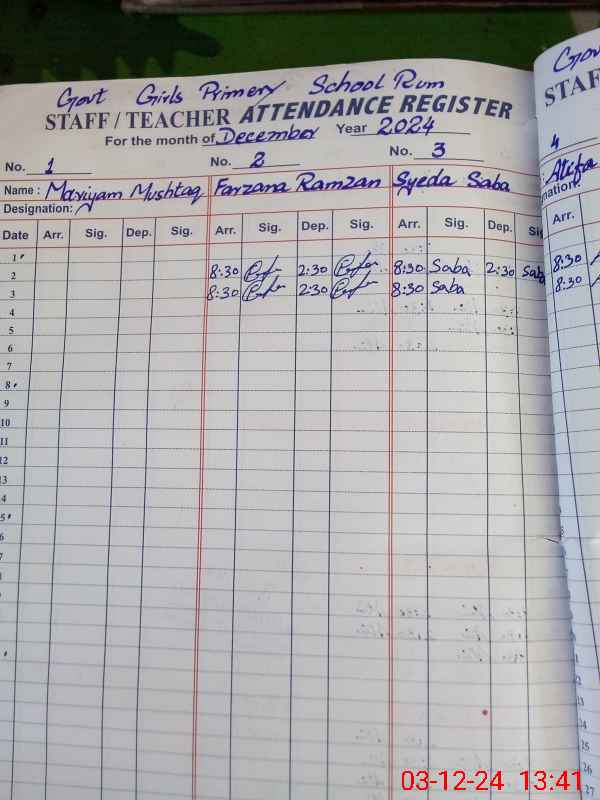 Govt Girls Primery School Rum
STAFF / TEACHER ATTENDANCE REGISTER
For the month of December Year 2024
No. 1 No. 2 No. 3
Name : Mariyam Mushtaq Farzana Ramzan Syeda Saba
Designation:
Date Arr. Sig. Dep. Sig. Arr. Sig. Dep. Sig. Arr. Sig. Dep. Sig
1
2 8:30 2:30 8:30 Saba 2:30 Saba
3 8:30 2:30 8:30 Saba
4
5
6
7
8
9
10
11
12
13
14
Gov
STAF
4
: Atifa
nation:
Arr.
8:30
8:30
22
23
24
25
26
27
03-12-24 13:41